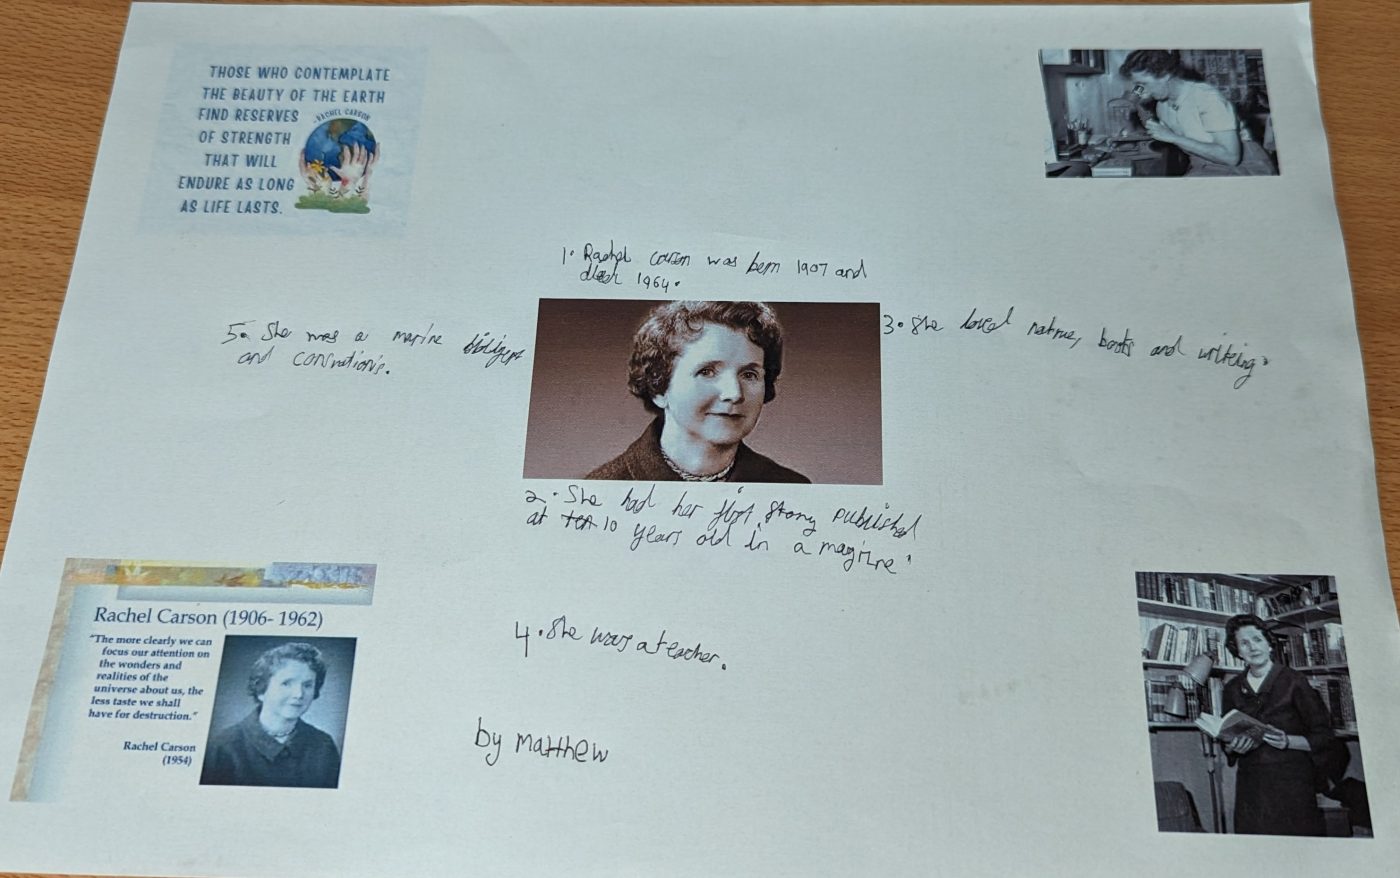 THOSE WHO CONTEMPLATE
THE BEAUTY OF THE EARTH
FIND RESERVES
OF STRENGTH
THAT WILL
ENDURE AS LONG
AS LIFE LASTS.
-RACHEL CARSON
1. Rachel carson was born 1907 and
1964.
5. She was a marine
and
3. She loved nature, books and writeing.
2. She had her first story published
at ten 10 years old in a magizne.
Rachel Carson (1906- 1962)
"The more clearly we can
focus our attention on
the wonders and
realities of the
universe about us, the
less taste we shall
have for destruction."
Rachel Carson
(1954)
4. She was a teacher.
by matthew